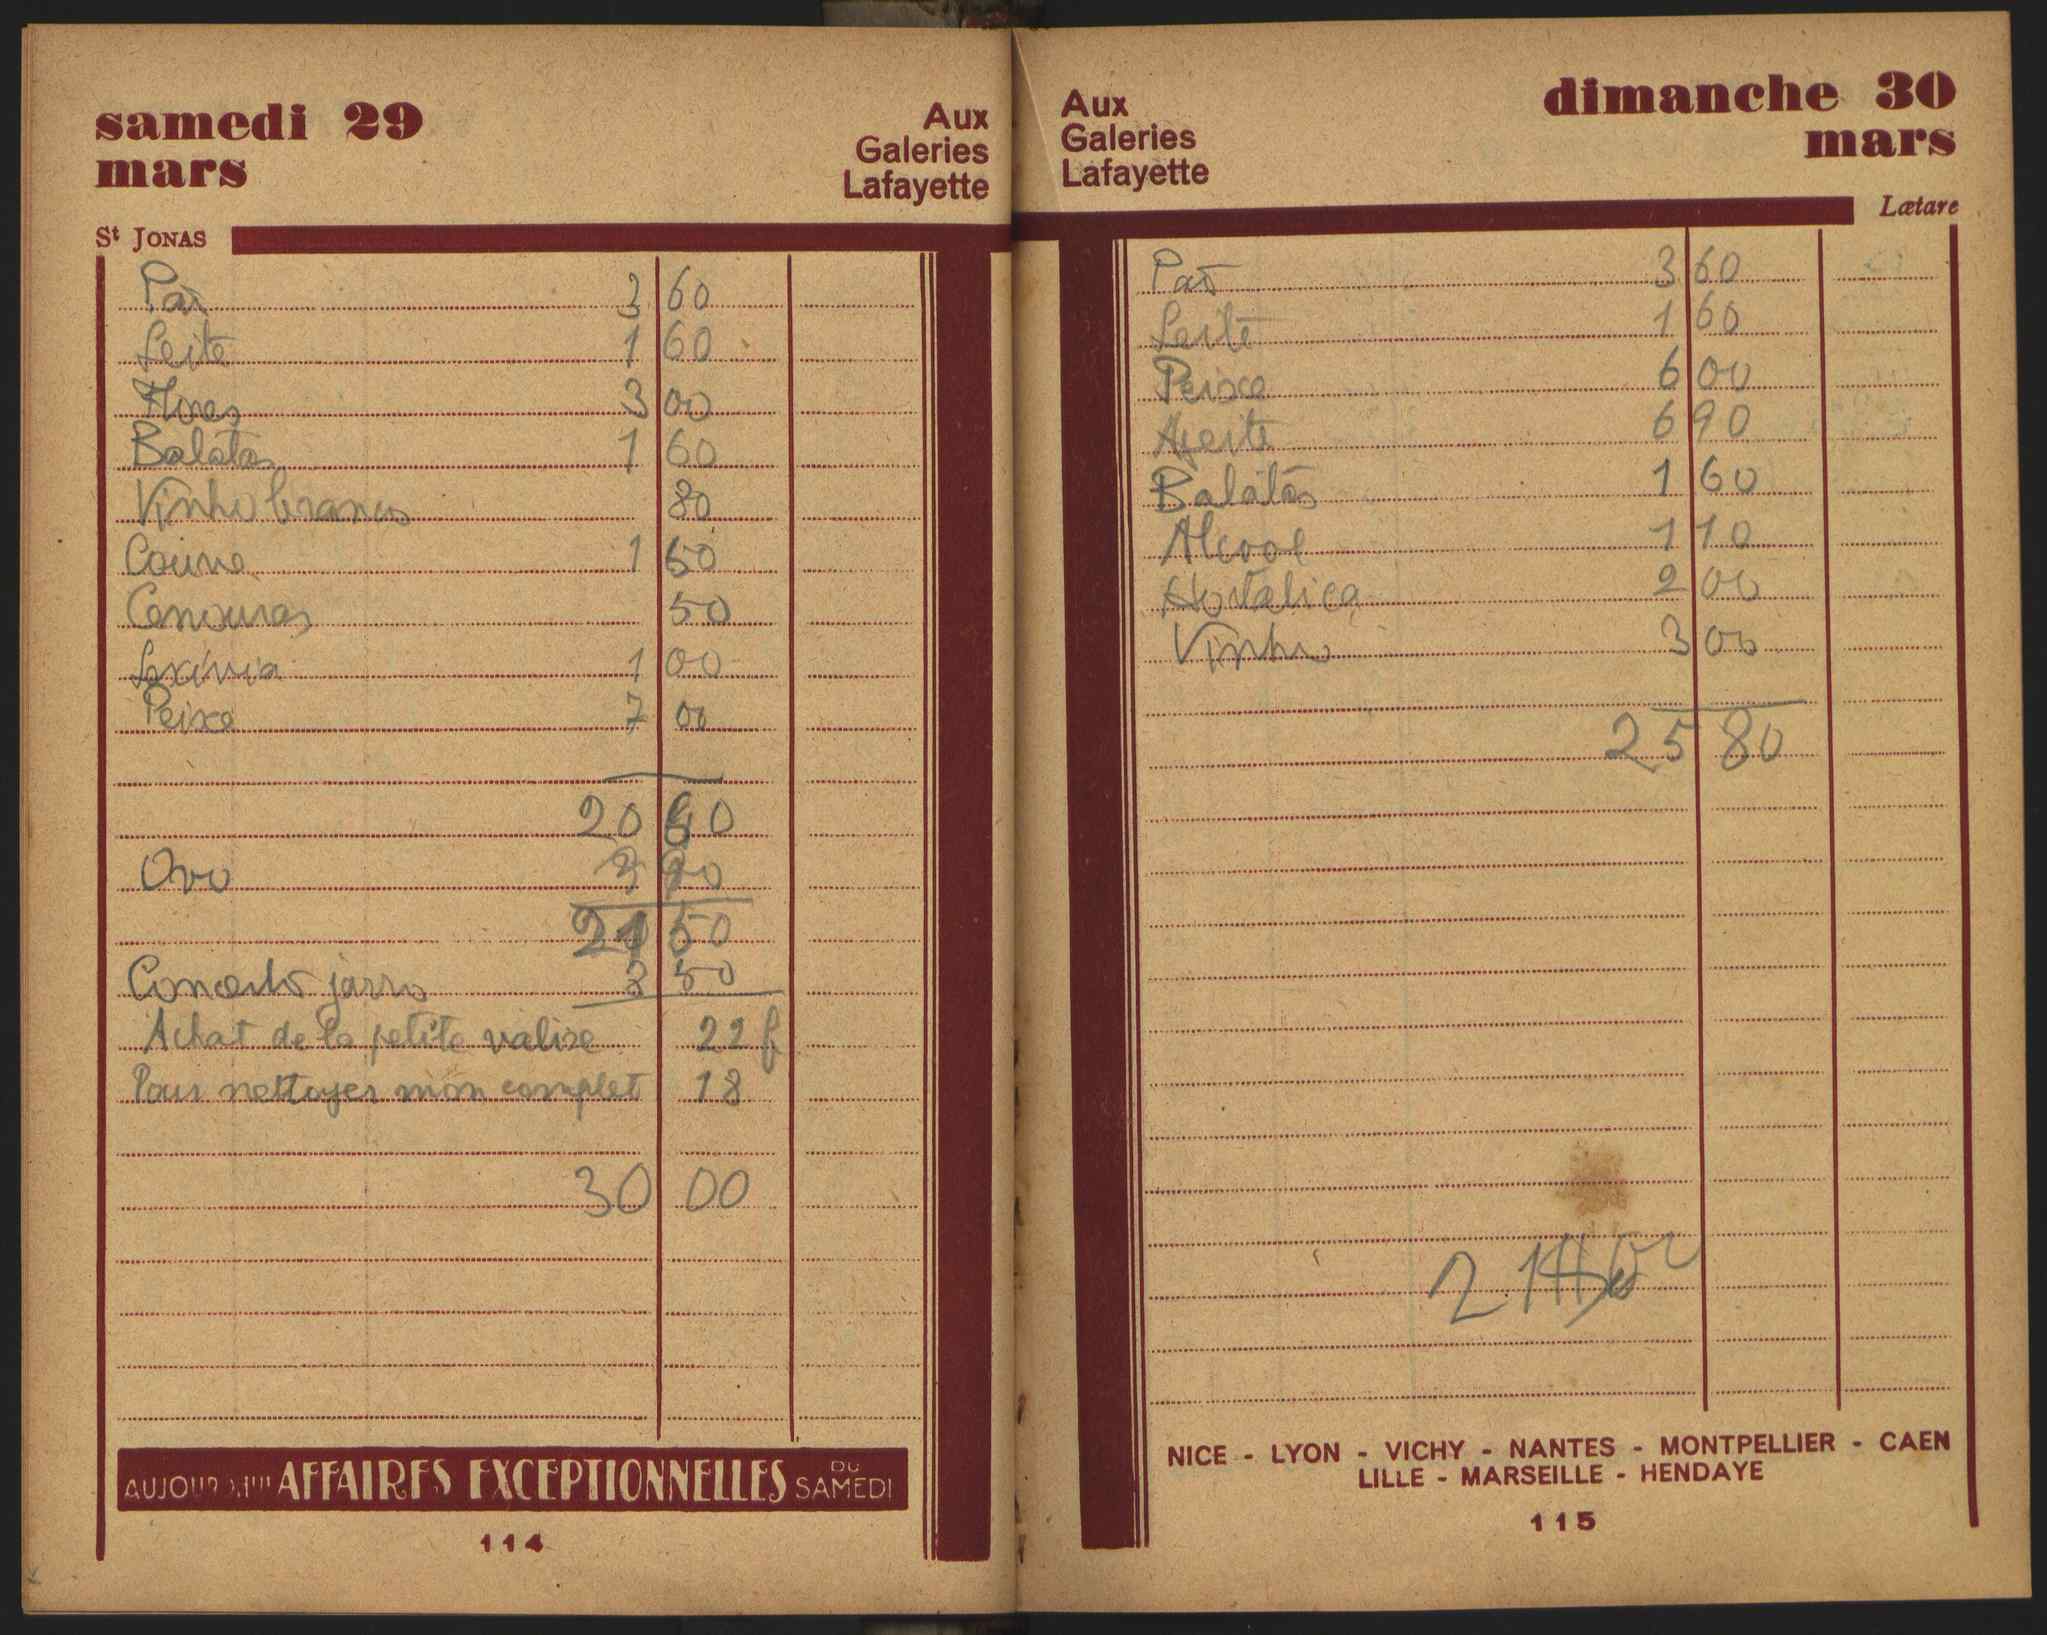 samedi 29
mars
Aux
Galeries
Lafayette
St JONAS
Paõ 3 60
Leite 1 60
Flores 3 00
Batatas 1 60
Vinho branco 80
Couve 1 60
Cenouras 50
Lexívia 1 00
Peixe 7 00
20 60
Ovo 90
21 50
Concerto jarro 2 50
Achat de la petite valise 22 f
Pour nettoyer mon complet 18
30 00
AUJOURD'HUI AFFAIRES EXCEPTIONNELLES DU SAMEDI
114
Aux
Galeries
Lafayette
dimanche 30
mars
Lætare
Paõ 3 60
Leite 1 60
Peixe 6 00
Azeite 6 90
Batatas 1 60
Alcool 1 10
Hortaliça 2 00
Vinho 3 00
25 80
NICE - LYON - VICHY - NANTES - MONTPELLIER - CAEN
LILLE - MARSEILLE - HENDAYE
115